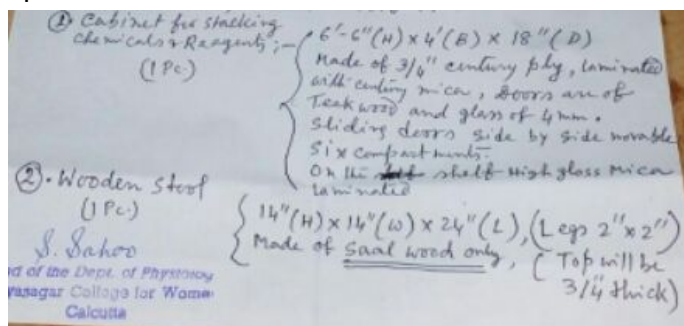 ① Cabinet for stacking
Chemicals & Reagents :-
(1 Pc.)
6'-6"(H) x 4'(B) x 18"(D)
Made of 3/4" century ply, laminated
with century mica, Doors are of
Teakwood and glass of 4 mm.
Sliding doors side by side movable
Six compartments.
On the shelf High gloss Mica
laminated
②. Wooden Stool
(1 Pc.)
14"(H) x 14"(W) x 24"(L), (Legs 2"x2")
Made of Saal wood only, (Top will be
3/4" thick)
S. Sahoo
d of the Dept. of Physiology
yasagar College for Women
Calcutta